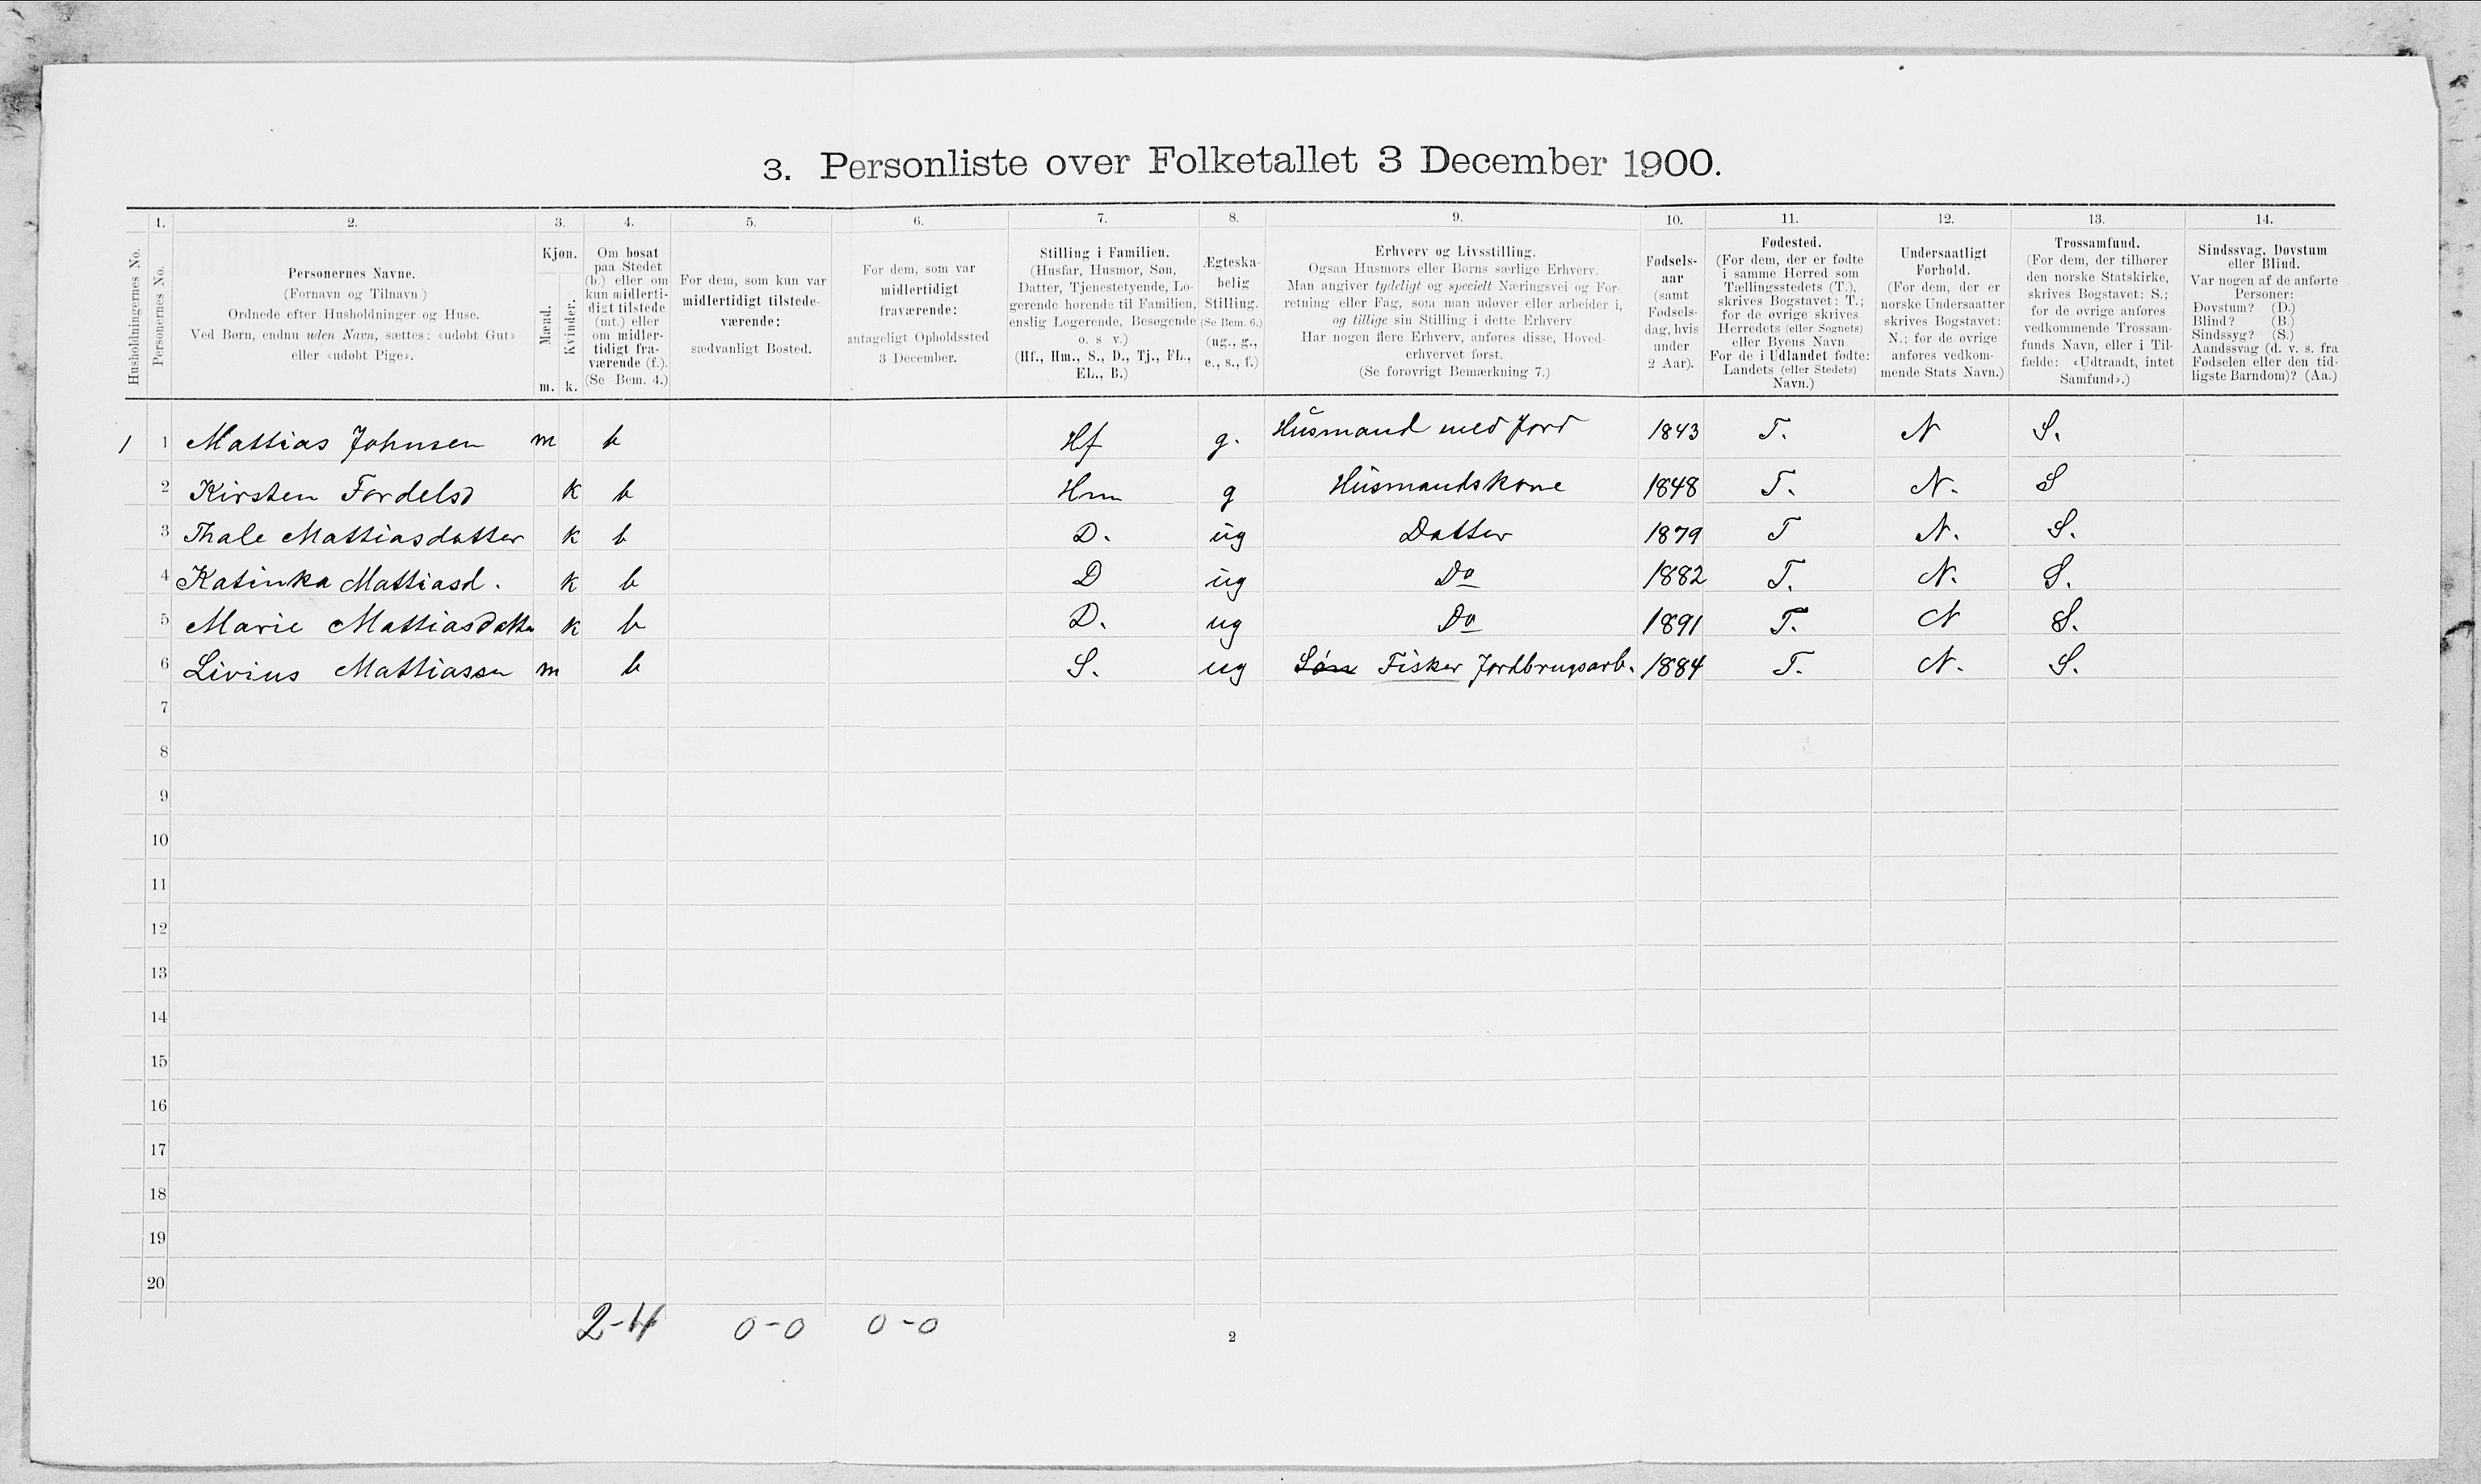 3. Personliste over Folketallet 3 December 1900.
1. 2. 3. 4. 5. 6. 7. 8. 9. 10. 11. 12. 13. 14.
Husholdningernes No.
Personernes No.
Personernes Navne.
(Fornavn og Tilnavn)
Ordnede efter Husholdninger og Huse.
Ved Børn, endnu uden Navn, sættes: «udøbt Gut»
eller «udøbt Pige».
Kjøn.
Mænd.
Kvinder.
m. k.
Om bosat
paa Stedet
(b.) eller om
kun midlerti-
digt tilstede
(mt.) eller
om midler-
tidigt fra-
værende (f.).
(Se Bem. 4.)
For dem, som kun var
midlertidigt tilstede-
værende:
sædvanligt Bosted.
For dem, som var
midlertidigt
fraværende:
antageligt Opholdssted
3 December.
Stilling i Familien.
(Husfar, Husmor, Søn,
Datter, Tjenestetyende, Lo-
gerende hørende til Familien,
enslig Logerende, Besøgende
o. s. v.)
(Hf., Hm., S., D., Tj., FL.,
EL., B.)
Ægteska-
belig
Stilling.
(Se Bem. 6.)
(ug., g.,
e., s., f.)
Erhverv og Livsstilling.
Ogsaa Husmors eller Børns særlige Erhverv.
Man angiver tydeligt og specielt Næringsvei og For-
retning eller Fag, som man udøver eller arbeider i,
og tillige sin Stilling i dette Erhverv
Har nogen flere Erhverv, anføres disse, Hoved-
erhvervet først.
(Se forøvrigt Bemærkning 7.)
Fødsels-
aar
(samt
Fødsels-
dag, hvis
under
2 Aar).
Fødested.
(For dem, der er fødte
i samme Herred som
Tællingsstedets (T.),
skrives Bogstavet: T.;
for de øvrige skrives
Herredets (eller Sognets)
eller Byens Navn
For de i Udlandet fødte:
Landets (eller Stedets)
Navn.)
Undersaatligt
Forhold.
(For dem, der er
norske Undersaatter
skrives Bogstavet:
N.; for de øvrige
anføres vedkom-
mende Stats Navn.)
Trossamfund.
(For dem, der tilhører
den norske Statskirke,
skrives Bogstavet: S.;
for de øvrige anføres
vedkommende Trossam-
funds Navn, eller i Til-
fælde: «Udtraadt, intet
Samfund».)
Sindssvag, Døvstum
eller Blind.
Var nogen af de anførte
Personer:
Døvstum? (D.)
Blind? (B.)
Sindssyg? (S.)
Aandssvag (d. v. s. fra
Fødselen eller den tid-
ligste Barndom)? (Aa.)
1 1 Mattias Johnsen m b Hf g. Husmand med Jord 1843 T. N S.
2 Kirsten Fordelsd k b Hm g Husmandskone 1848 T. N. S
3 Thale Mattiasdatter k b D. ug Datter 1879 T N. S.
4 Katinka Mattiasd. k b D ug Do 1882 T. N. S.
5 Marie Mattiasdatter k b D. ug Do 1891 T. N S.
6 Livius Mattiassen m b S. ug Søn Fisker Jordbrugsarb. 1884 T. N. S.
7
8
9
10
11
12
13
14
15
16
17
18
19
20
2-4 0-0 0-0
2